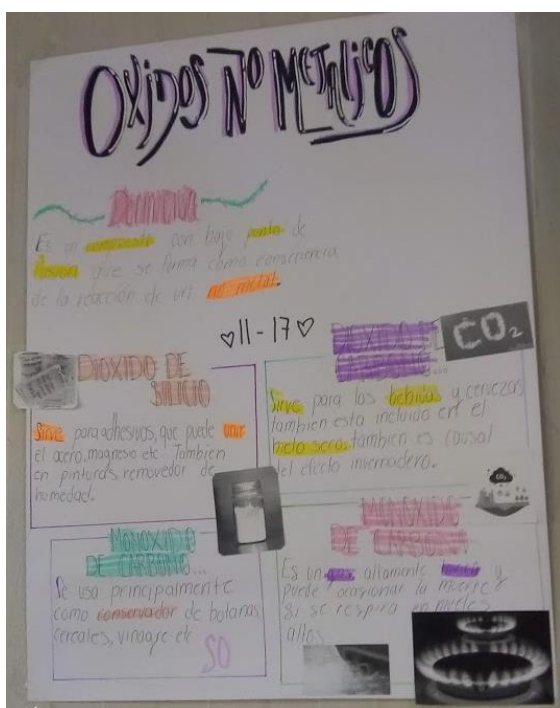 OXIDOS NO METALICOS
Es un compuesto con bajo punto de
fusion que se forma como consecuencia
de la reacción de un no metal.
♡11-17♡
DIOXIDO DE
SILICIO
Sirve para adhesivos, que puede unir
el acero, magnesio etc. Tambien
en pinturas, removedor de
homedad.
DIOXIDO DE
CO₂
Sirve para las bebidas y cervezas
tambien esta incluido en el
hielo seco, tambien es causal
del efecto invernadero.
MONOXIDO
DE CARBONO...
Se usa principalmente
como conservador de botanas
cereales, vinagre etc
SO
MONOXIDO
DE CARBONO
Es un gas altamente y
puede ocasionar la muerte
si se respira en niveles
altos